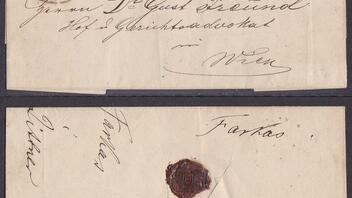 Herrn Dr Gust Freund
Hof u Gerichtsadvokat
in
Wien
Farkas
Farkas